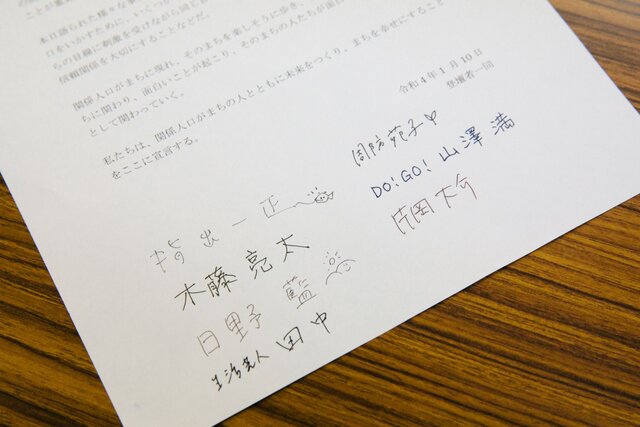 本日語られた様々な事
口をいかすために、いくつか
らの目線に刺激を受けながら語り合
信頼関係を大切にすることなどだ。
関係人口がまちに現れ、そのまちを楽しそうに歩き、
ちに関わり、面白いことが起こり、そのまちの人たちが面白
として関わっていく。
私たちは、関係人口がまちの人とともに未来をつくり、まちを幸せにすること
をここに宣言する。
令和4年1月10日
登壇者一同
指出一正
木藤亮太
日野子 藍
田中
周防苑子
DO!GO! 山澤満
片岡大介